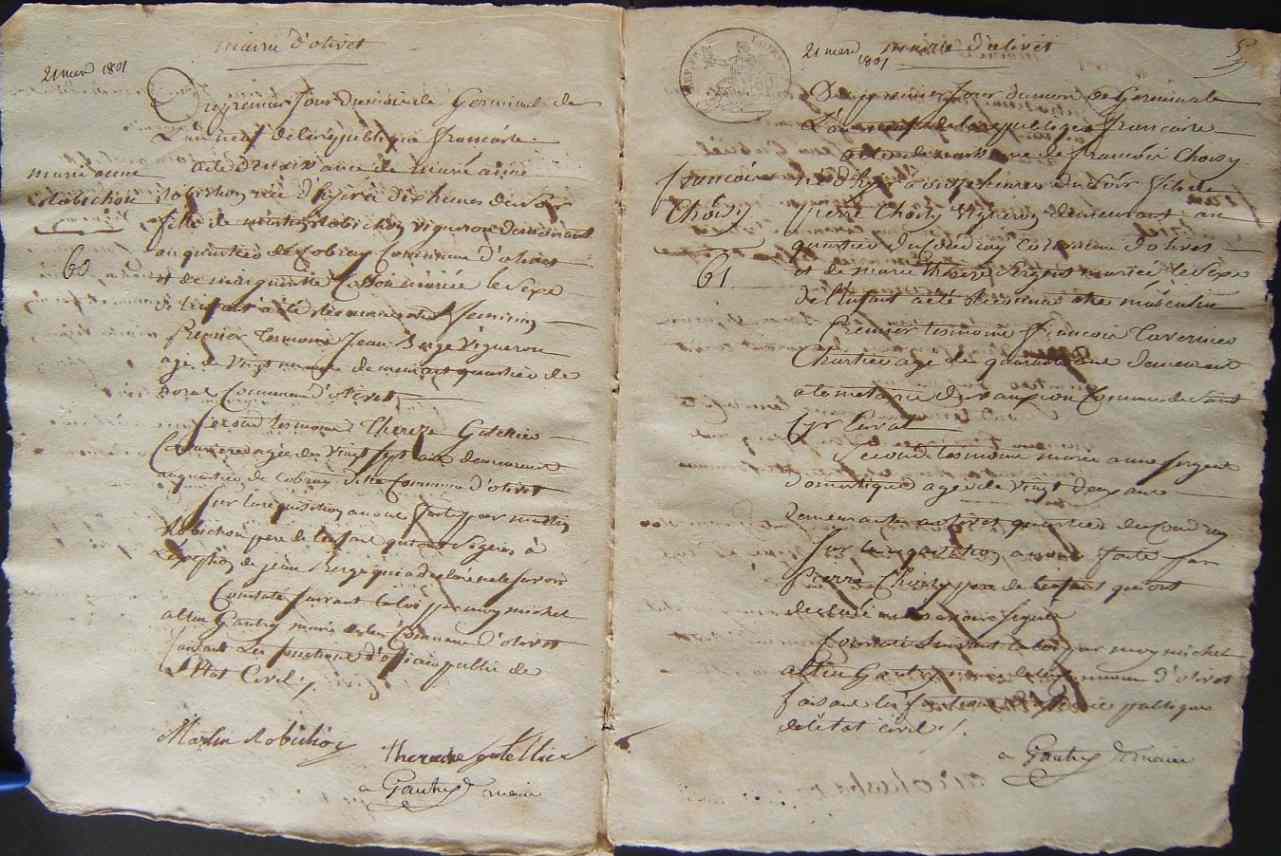 mairie d'olivet
21 mars 1801
Du premier Jour du mois de Germinal de
L'an neuf de la république française
acte de naissance de marie anne
marie anne
Robichon
60
Robichon née d'hyer à dix heures du soir
fille de martin Robichon vigneron demeurant
au quartier de Cobray Commune d'olivet
et de marguerite mariée le sexe
de l'enfant a été reconnu être feminin
Premier tesmoin Jean Berge Vigneron
agé de Vingt demeurant quartier de
Commune d'olivet
Second tesmoin Thereze
agée de Vingt sept ans demeurant
au quartier de Cobray ditte Commune d'olivet
Sur la requisition a nous faitte par martin
Robichon pere de l'enfant qui ont signés à
L'exception de jean Berge qui a declaré ne le savoir
Constaté suivant la loi par moy michel
altin Gautry maire de la Commune d'olivet
faisant Les fonctions d'officier public de
L'Etat Civil
Martin Robichon
therese
Gautry maire
mairie d'olivet
21 mars
1801
Du premier Jour du mois de Germinal de
L'an neuf de la république francaise
acte de naissance de francois Choisy
francois
Choisy
61
né d'hyer à onze heures du soir fils de
pierre Choisy Vigneron demeurant au
quartier du Coudray Commune d'olivet
et de marie therese Sergent mariée le Sexe
de l'Enfant a été reconnu etre masculin
Premier tesmoin francois
Chartier agé de quarante ans demeurant
a la metairie de Commune de Saint
Cyr en val
Second tesmoin marie anne Sergent
Domestique agée de Vingt deux ans
Demeurante a olivet quartier du Coudray
Sur la requisition a nous faite par
Pierre Choisy pere de l'enfant qui ont
declaré ne savoir signer
Constaté Suivant la loi par moy michel
altin Gautry maire de la Commune d'olivet
faisant les fonctions d'officier publique
de l'état civil
Gautry maire